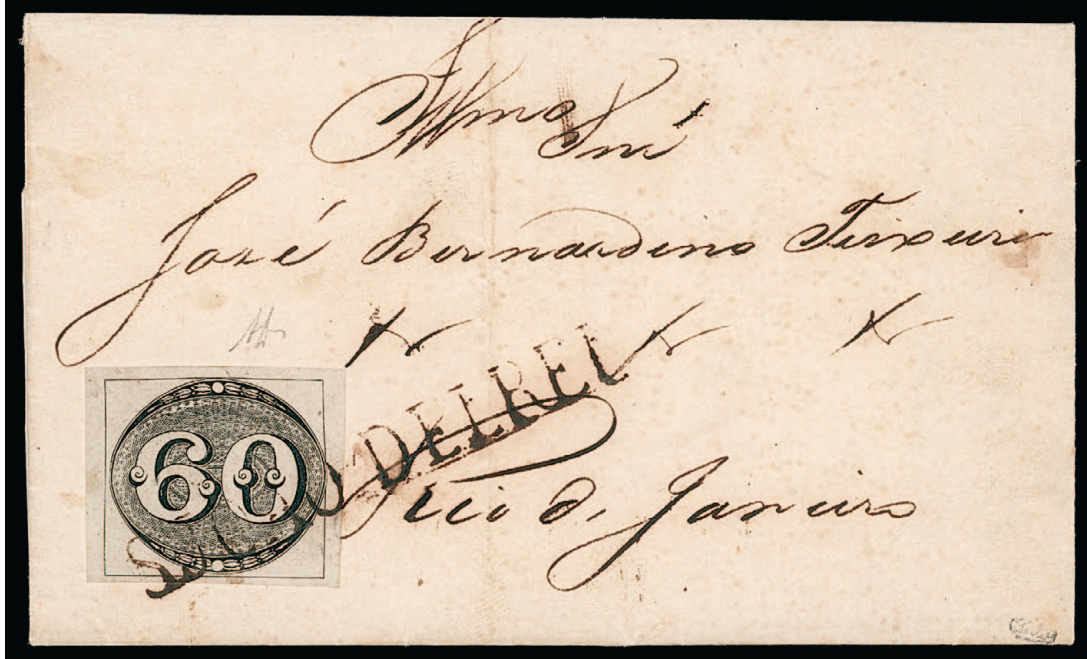 Illmo Snr
José Bernardino Teixeira
60
S. JOÃO DEL REI
Rio de Janeiro